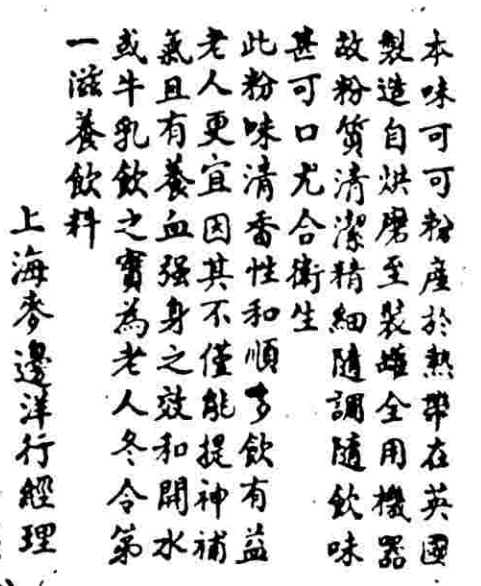 本味可可粉產於熱帶在英國
製造自烘磨至裝罐全用機器
故粉質清潔精細隨調隨飲味
甚可口尤合衛生
此粉味清香性和順多飲有益
老人更宜因其不僅能提神補
氣且有養血强身之效和開水
或牛乳飲之實為老人冬令第
一滋養飲料
上海麥邊洋行經理